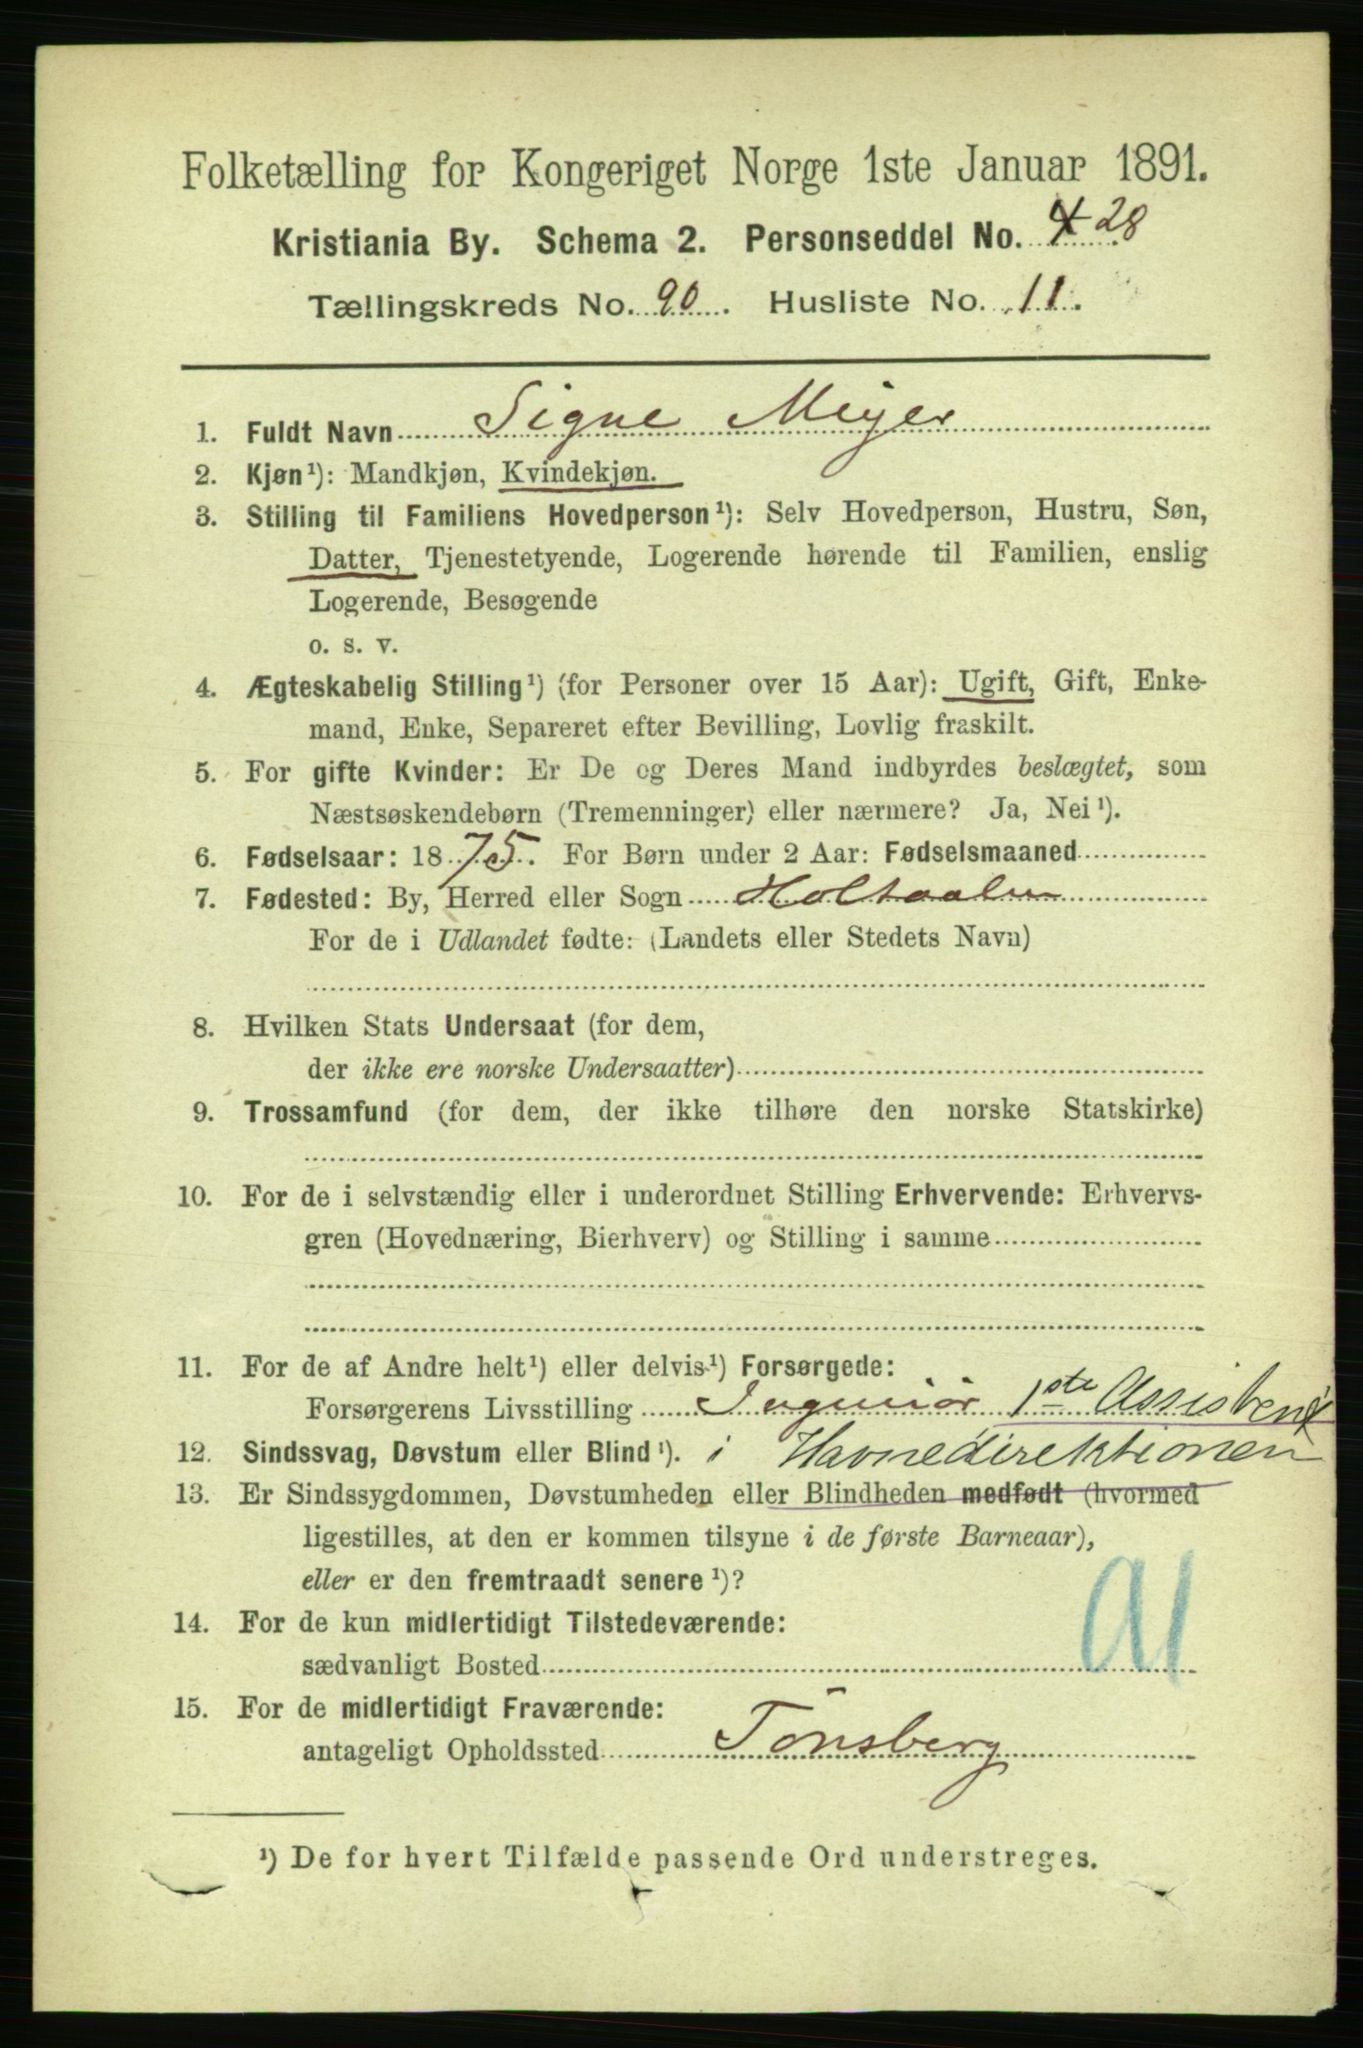 Folketælling for Kongeriget Norge 1ste Januar 1891.
Kristiania By. Schema 2. Personseddel No. 4 28
Tællingskreds No. 90. Husliste No. 11.
1. Fuldt Navn Signe Meyer
2. Kjøn¹): Mandkjøn, Kvindekjøn.
3. Stilling til Familiens Hovedperson¹): Selv Hovedperson, Hustru, Søn,
Datter, Tjenestetyende, Logerende hørende til Familien, enslig
Logerende, Besøgende
o. s. v.
4. Ægteskabelig Stilling¹) (for Personer over 15 Aar): Ugift, Gift, Enke-
mand, Enke, Separeret efter Bevilling, Lovlig fraskilt.
5. For gifte Kvinder: Er De og Deres Mand indbyrdes beslægtet, som
Næstsøskendebørn (Tremenninger) eller nærmere? Ja, Nei¹).
6. Fødselsaar: 1875. For Børn under 2 Aar: Fødselsmaaned
7. Fødested: By, Herred eller Sogn Holtaalen
For de i Udlandet fødte: (Landets eller Stedets Navn)
8. Hvilken Stats Undersaat (for dem,
der ikke ere norske Undersaatter)
9. Trossamfund (for dem, der ikke tilhøre den norske Statskirke)
10. For de i selvstændig eller i underordnet Stilling Erhvervende: Erhvervs-
gren (Hovednæring, Bierhverv) og Stilling i samme
11. For de af Andre helt¹) eller delvis¹) Forsørgede:
Forsørgerens Livsstilling Ingeniør 1ste Assistent
12. Sindssvag, Døvstum eller Blind¹). i Havnedirektionen
13. Er Sindssygdommen, Døvstumheden eller Blindheden medfødt (hvormed
ligestilles, at den er kommen tilsyne i de første Barneaar),
eller er den fremtraadt senere¹)?
14. For de kun midlertidigt Tilstedeværende:
sædvanligt Bosted
15. For de midlertidigt Fraværende:
antageligt Opholdssted Tönsberg
¹) De for hvert Tilfælde passende Ord understreges.